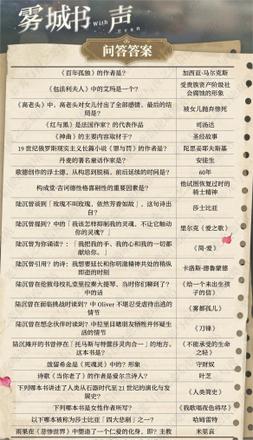 雾城书声
With
问答答案
《百年孤独》的作者是? 加西亚·马尔克斯
《包法利夫人》中的艾玛是一个? 受贵族资产阶级社
会腐蚀的形象
《高老头》中，高老头对女儿付出了全部感情，最后的结
局是? 被女儿抛弃惨死
《红与黑》是法国作家? 的代表作品 司汤达
《神曲》的主要内容取材于? 圣经故事
19世纪俄罗斯现实主义长篇小说《罪与罚》的作者是? 陀思妥耶夫斯基
丹麦的著名童话作家是? 安徒生
歌德创作的浮士德，从构思到脱稿，前后延续的时间是? 60年
构成堂·吉诃德性格喜剧性的重要因素是? 他试图恢复过时的
骑士精神
陆沉曾谈到「玫瑰不叫玫瑰，依然芳香如故」，这句诗出
自? 莎士比亚
陆沉曾提到? 中的「我该怎样抑制我的灵魂，不让它触动
你的灵魂？」 里尔克《爱之歌》
陆沉曾为你诵读? :「我把我的手、我的心和我的一切都
献给你。」 《简·爱》
陆沉曾引用? 的诗：我想要延长和你明澈精神共处的稍纵
即逝的时刻 卡洛斯·德鲁蒙德
陆沉曾在伦敦母校礼堂里拉奏大提琴，当时你们聊到了?
中的话 《给一个未出生孩
子的信》
陆沉曾在面临挑战时谈到? 中 Oliver 不堪忍受虐待出逃的
情节 《雾都孤儿》
陆沉曾在想念伙伴时谈到? 中拉里目睹朋友牺牲并怀疑生
活的情节 《刀锋》
陆沉降开的书曾停在「托马斯与特蕾莎灵肉合一」的地方，
这本书是? 《不能承受的生命
之轻》
泼留希金是《死魂灵》中的? 形象 守财奴
诗歌《当你老了》的作者是爱尔兰诗人? 叶芝
下列哪本书讲述了人类从石器时代至21世纪的演化与发
展史? 《人类简史》
下列哪本书是女性作者所写? 《我歌唱夜色将尽》
以下哪本书被称为莎士比亚「四大悲剧」之一? 哈姆雷特
雨果在《悲惨世界》中塑造了一个仁爱的化身，即? 主教 米里哀